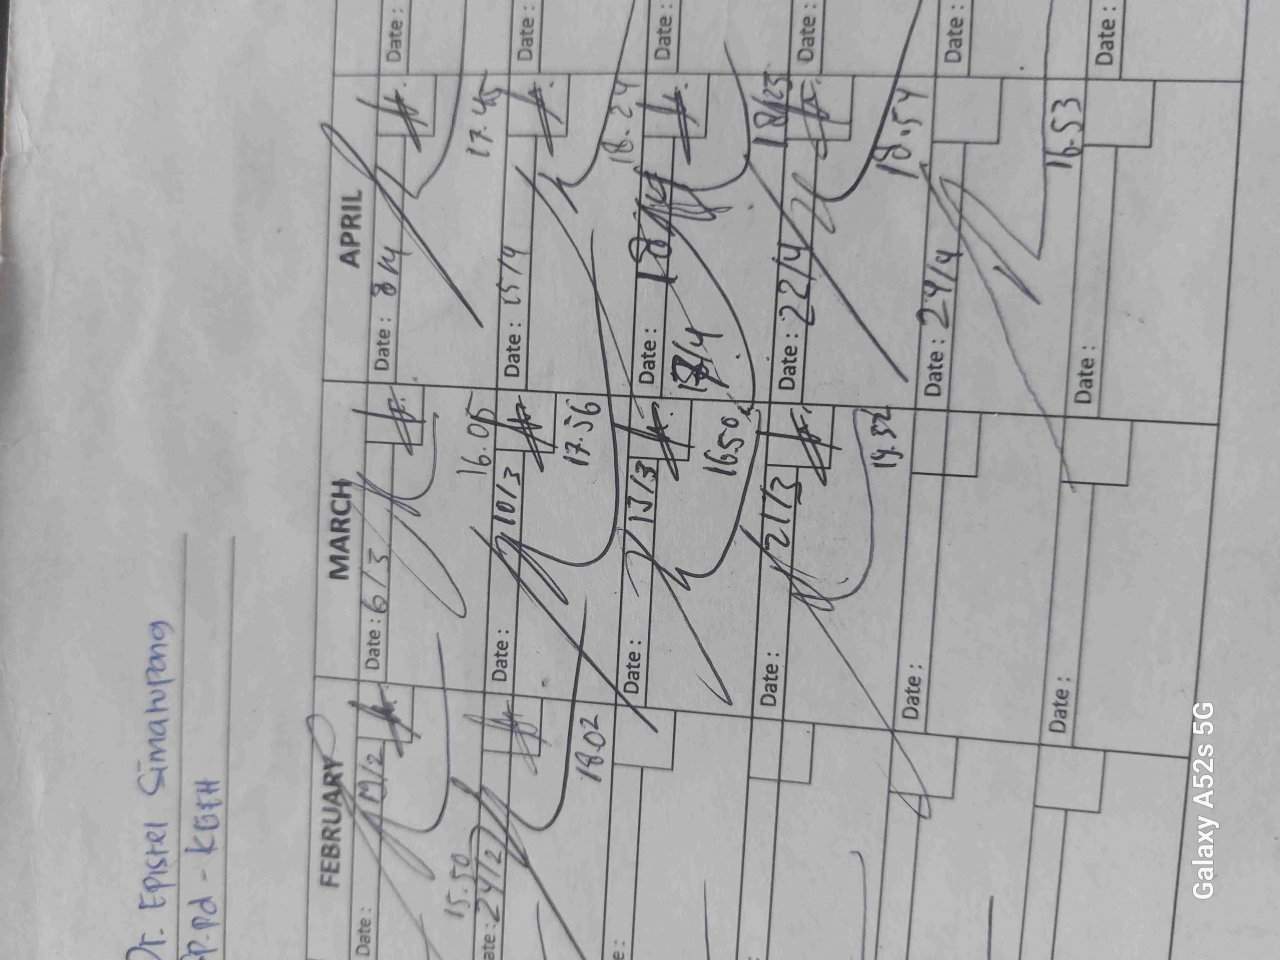 Dr. Epistel Simatupang
Sp.Pd - KGEH
FEBRUARY
MARCH
APRIL
Date :
Date : 6/3
Date : 8/4
Date :
15.50
16.05
17.45
ate : 24/2
Date : 10/3
Date : 15/4
Date :
18.02
17.56
18.24
e :
Date : 13/3
Date : 18/4
Date :
18/4
16.50
18/25
Date : 21/3
Date : 22/4
Date :
19.32
18.54
Date :
Date : 24/4
Date :
16.53
Date :
Date :
Date :
Galaxy A52s 5G